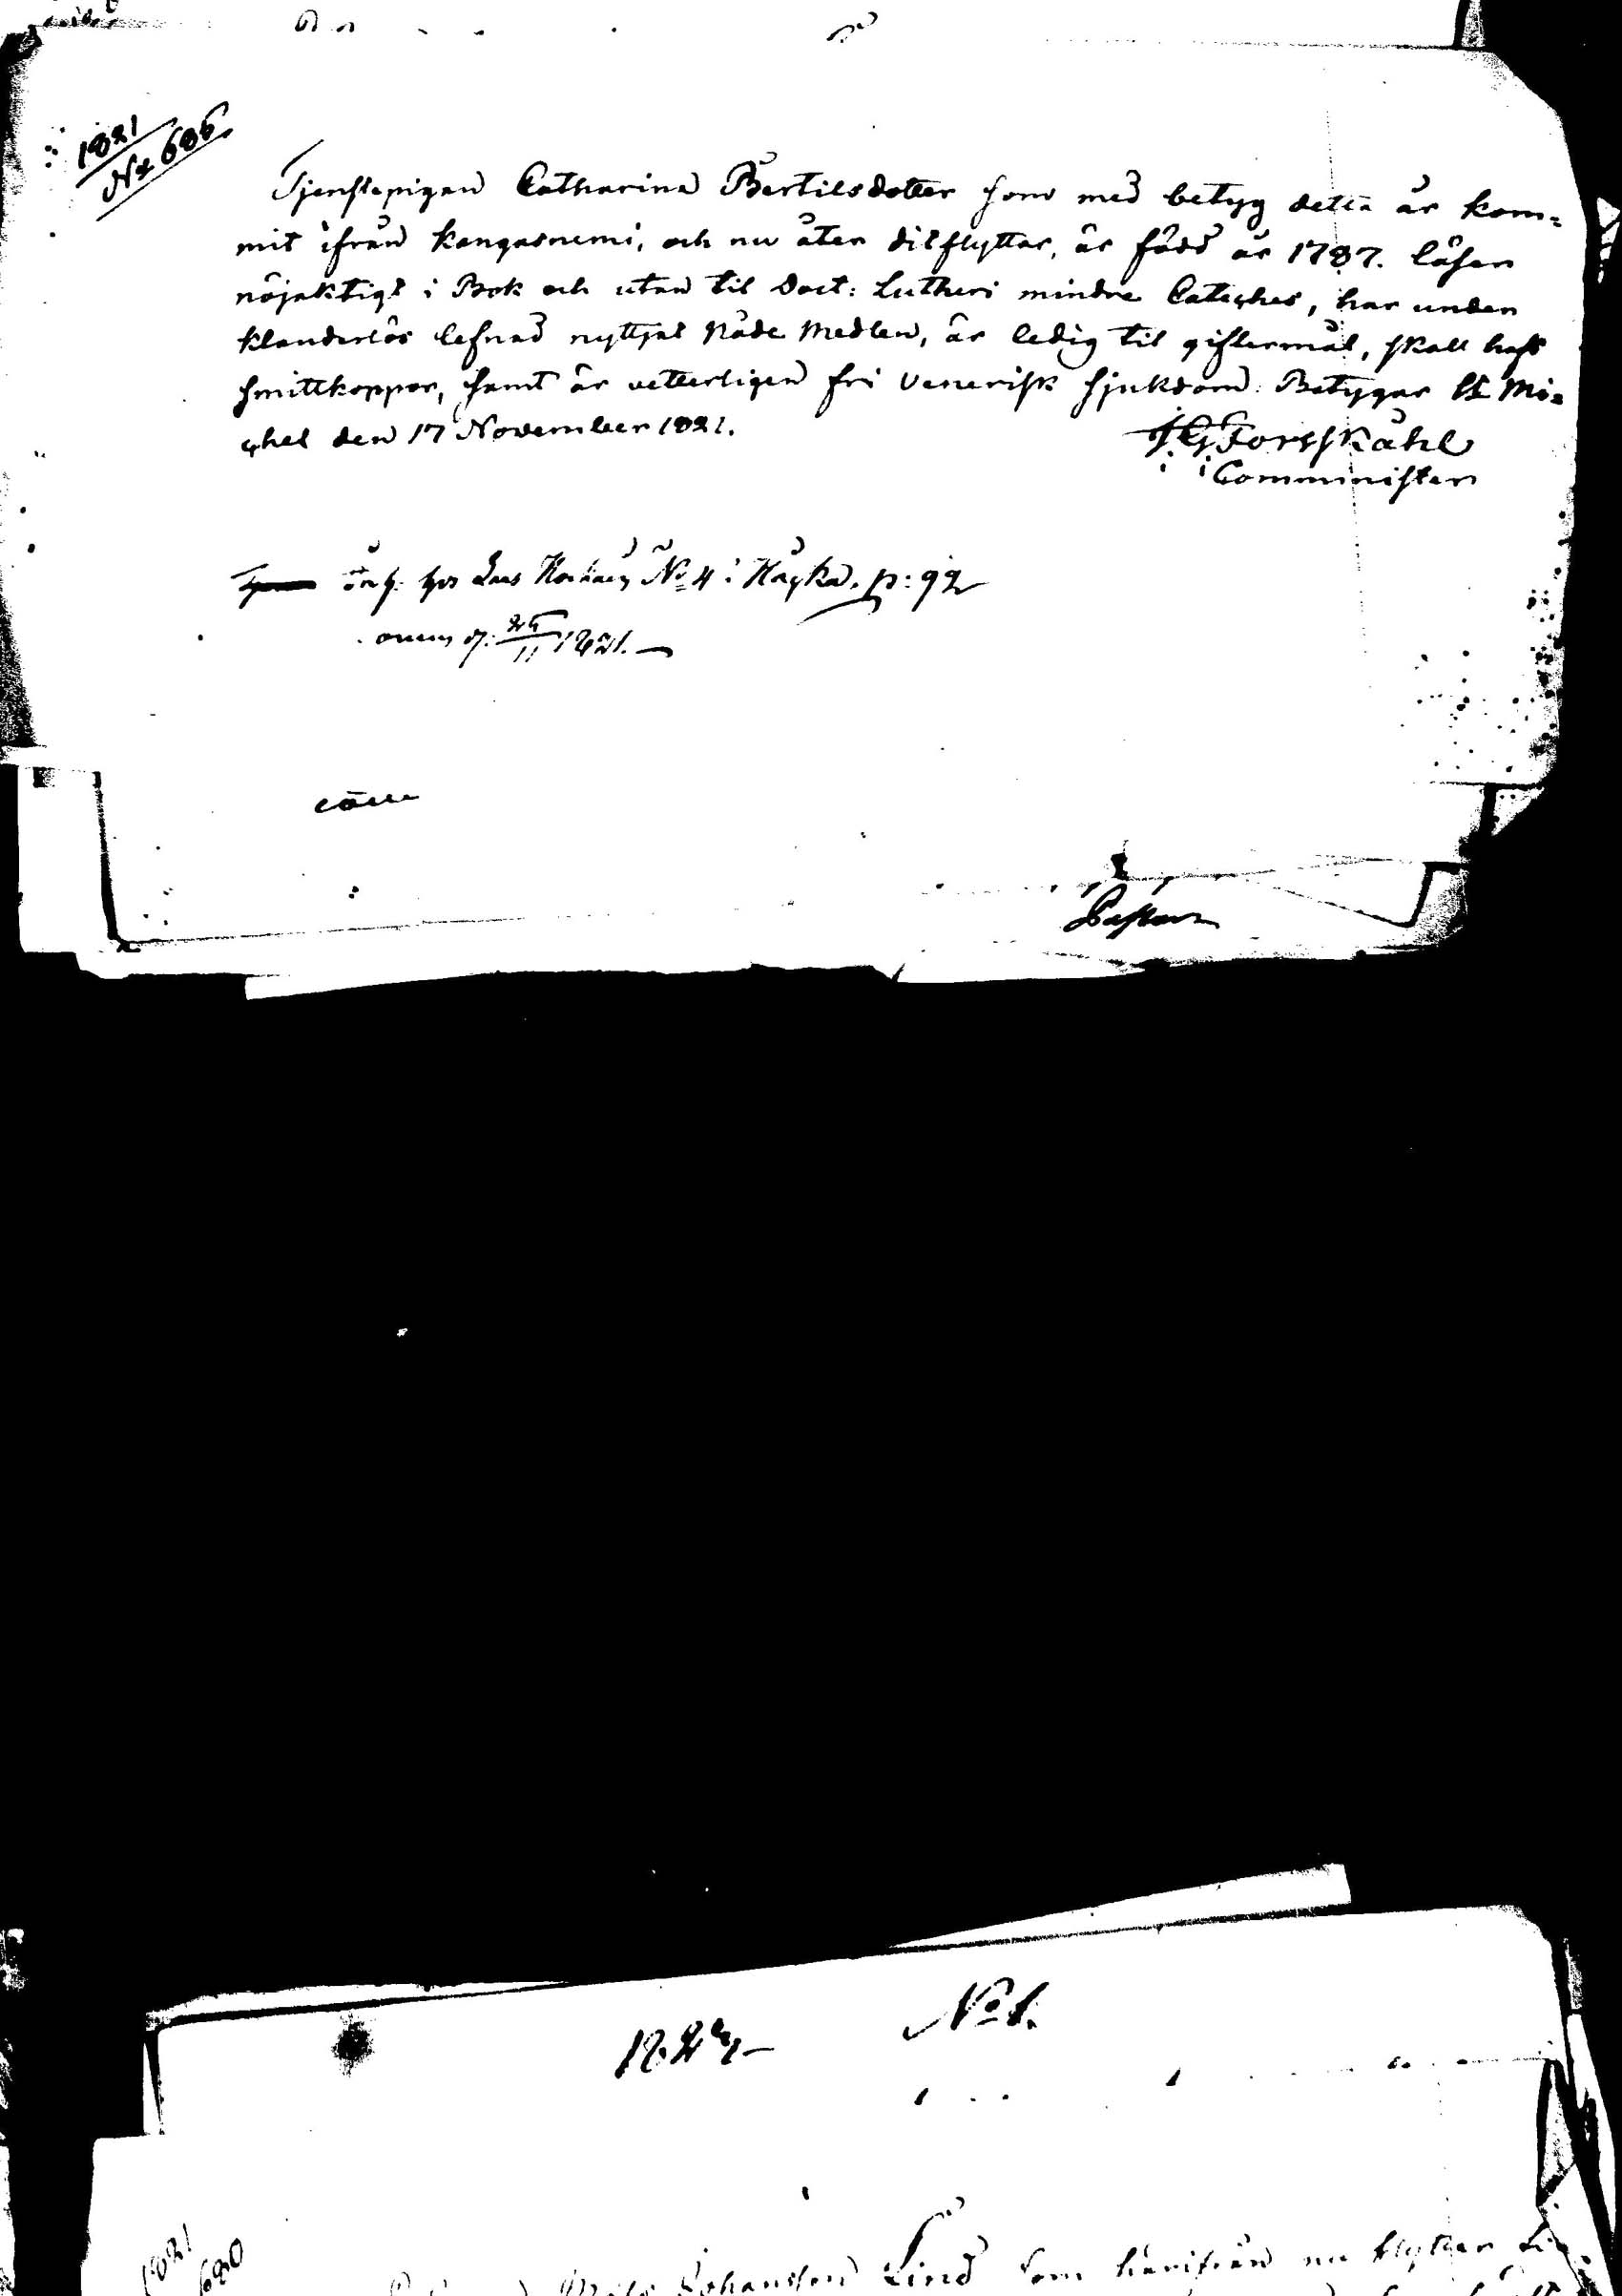 1821
No 686
Tjenstepigan Catharina Bertilsdotter som med betyg detta år kom=
mit ifrån Kangasnemi, och nu åter ditflyttar, är född år 1787. läser
nöjaktigt i Bok och utan til Doct: Lutheri mindre Cateches, har under
klanderlös lefnad nyttjat Nåde Medlen, är ledig til giftermål, skall haft
smittkoppor, samt är vetterligen fri Venerisk sjukdom. Betygar St Mi=
chel den 17 November 1821.
J G Forsskåhl
Comminister
hos Lars No 4 i p: 92
d. 25/11 1821.
Pastor
No 1.
1821
680
Johansson Lind som härifrån nu flyttar